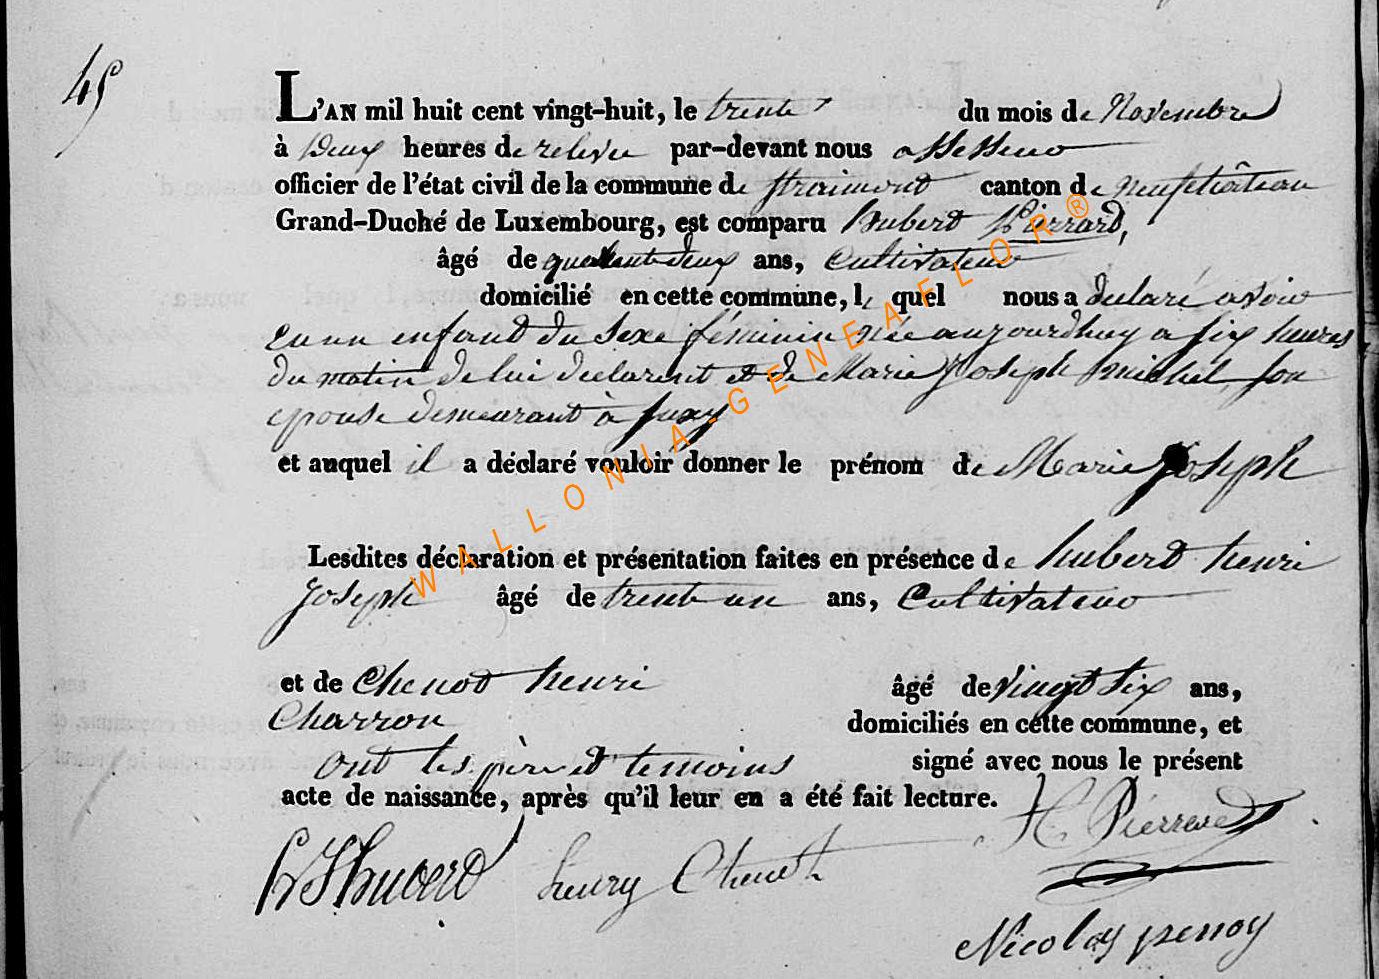 45
L'AN mil huit cent vingt-huit, le trente du mois de Novembre
à Deux heures de relevée par-devant nous assesseur
officier de l'état civil de la commune de straimont canton de neufchâteau
Grand-Duché de Luxembourg, est comparu Hubert Pierrard,
âgé de quarante deux ans, cultivateur
domicilié en cette commune, le quel nous a declaré avoir
eu un enfant du sexe féminin née aujourdhuy a six heures
du matin de lui declarent et de Marie Joseph michel son
epouse demeurant à suxy
et auquel il a déclaré vouloir donner le prénom de Marie Joseph
Lesdites déclaration et présentation faites en présence de hubert henri
Joseph âgé de trente un ans, Cultivateur
et de Chenot henri âgé de vingt six ans,
Charron domiciliés en cette commune, et
ont les père et temoins signé avec nous le présent
acte de naissance, après qu'il leur en a été fait lecture.
H. Pierrard
hubert henry Chenot
Nicolas penoy
WALLONIA-GENEAFLOR®